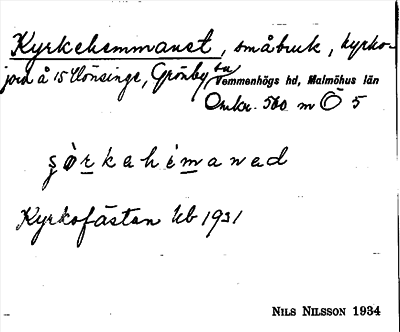 Kyrkehemmanet, småbruk, kyrko-
jord å 15 Lönsinge, Grönby sn
Vemmenhögs hd, Malmöhus län
Omkr. 500 m Ö 5
kahemanad
Kyrkofästan Ub 1931
NILS NILSSON 1934